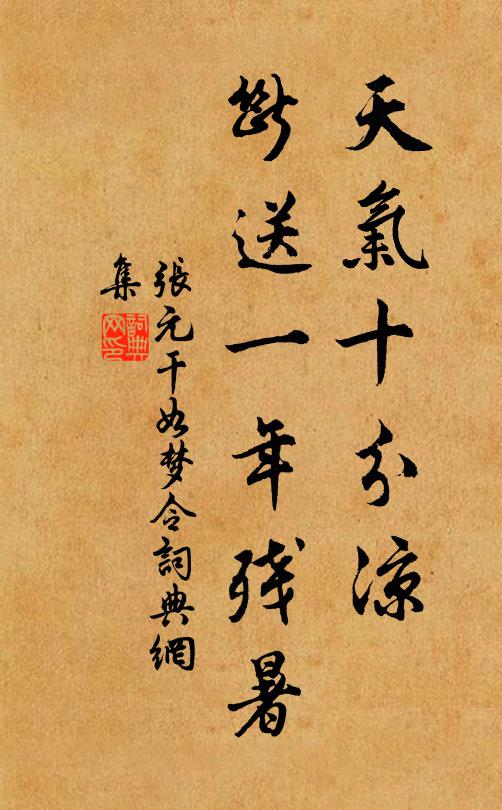 天氣十分涼
断送一年残暑
張元干如梦令詞典網
集
詞典
网印